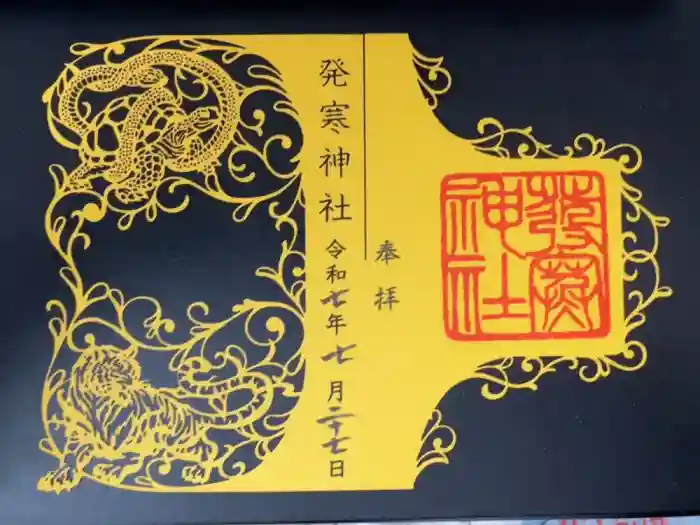 發寒
神社
奉拝
発寒神社 令和七年七月二十七日